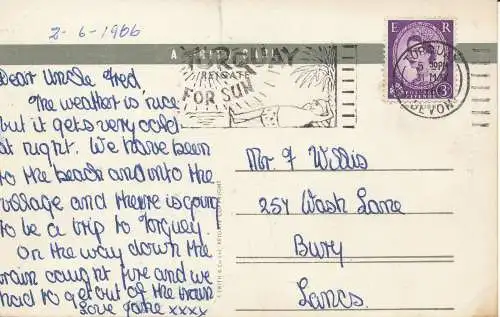 2-6-1966
TORQUAY
FOR SUN
E R
3D
TORQUAY
DEVON
Dear Uncle Fred,
The weather is nice
but it gets very cold
at night. We have been
to the beach and into the
village and there is going
to be a trip to Torquay.
On the way down the
train caught fire and we
had to get out of the train
love Jane xxxx
Mr F Willis
257 Wash Lane
Bury
Lancs.